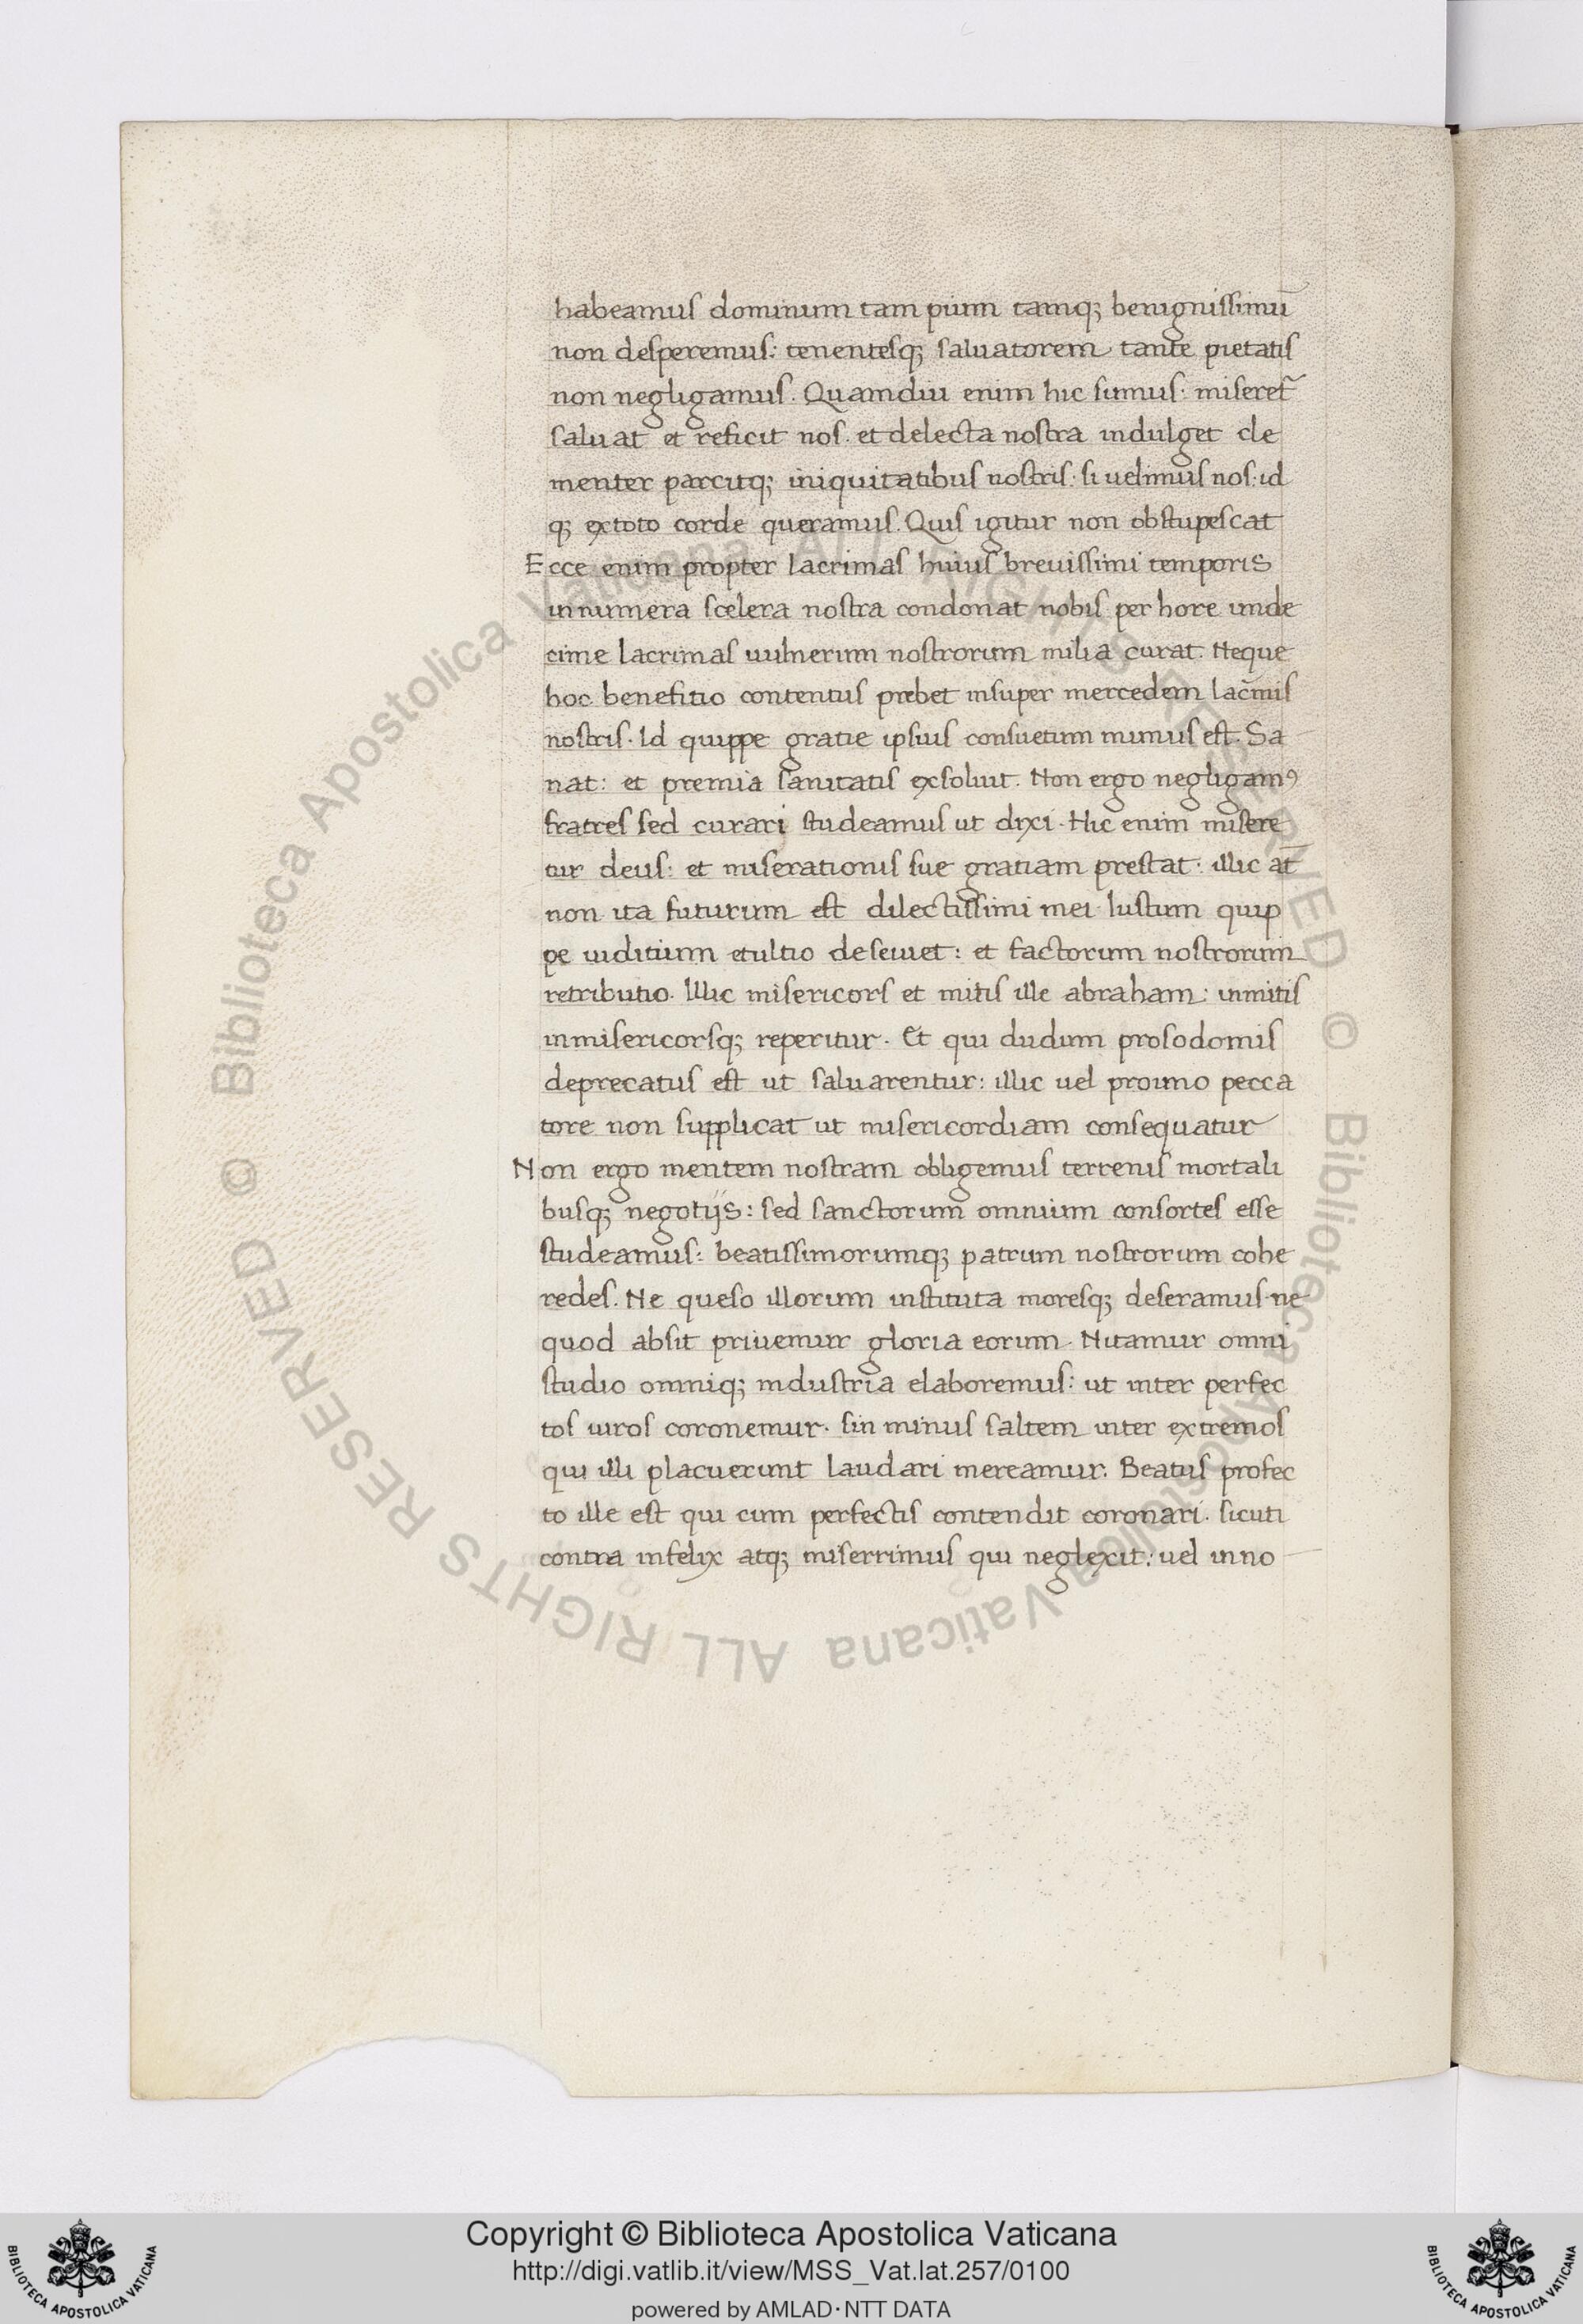 habeamus dominum tam pium tamq; benignissimū
non desperemus: tenentesq; saluatorem tante pietatis
non negligamus. Quamdiu enim hic sumus: miseret̃
saluat et reficit nos. et delecta nostra indulget cle
menter parcitq; iniquitatibus nostris: si uelimus nos: id
q; extoto corde queramus. Quis igitur non obstupescat
Ecce enim propter lacrimas huius breuissimi temporis
innumera scelera nostra condonat nobis per hore unde
cime lacrimas uulnerum nostrorum milia curat. Neque
hoc benefitio contentus prebet insuper mercedem lac̃mis
nostris. Id quippe gratie ipsius consuetum munus est. Sa
nat: et premia sanitatis exsoluit. Non ergo negligamꝰ
fratres sed curari studeamus ut dixi. Hic enim misere
tur deus: et miserationis sue gratiam prestat: illic at̄
non ita futurum est dilectissimi mei Iustum quip
pe iuditium etultio deseuiet: et factorum nostrorum
retributio. Illic misericors et mitis ille abraham: inmitis
inmisericorsq; reperitur. Et qui dudum prosodomis
deprecatus est ut saluarentur: illic uel prouno pecca
tore non supplicat ut misericordiam consequatur
Non ergo mentem nostram obligemus terrenis mortali
busq; negotijs: sed sanctorum omnium consortes esse
studeamus: beatissimorumq; patrum nostrorum cohe
redes. Ne queso illorum instituta moresq; deseramus ne
quod absit priuemur gloria eorum. Nitamur omni
studio omniq; industria elaboremus: ut inter perfec
tos uiros coronemur. sin minus saltem inter extremos
qui illi placuerunt laudari mereamur. Beatus profec
to ille est qui cum perfectis contendit coronari. sicuti
contra infelix atq; miserrimus qui neglexit: uel inno
© Biblioteca Apostolica Vaticana ALL RIGHTS RESERVED © Biblioteca Apostolica Vaticana ALL RIGHTS RESERVED
Copyright © Biblioteca Apostolica Vaticana
http://digi.vatlib.it/view/MSS_Vat.lat.257/0100
powered by AMLAD·NTT DATA
BIBLIOTECA APOSTOLICA VATICANA
BIBLIOTECA APOSTOLICA VATICANA